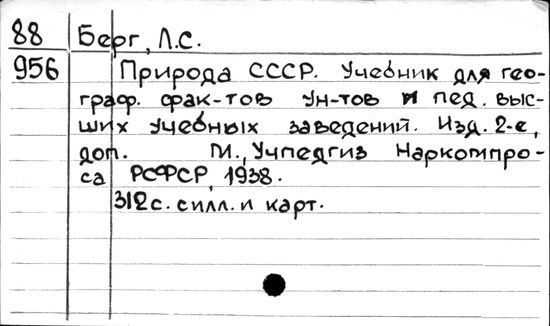 88 Берг, Л.С.
956 Природа СССР. Учебник для гео-
граф. фак-тов ун-тов и пед. выс-
ших учебных заведений. Изд. 2-е,
доп. М., Учпедгиз Наркомпро-
са РСФСР, 1938.
312 с. с илл. и карт.